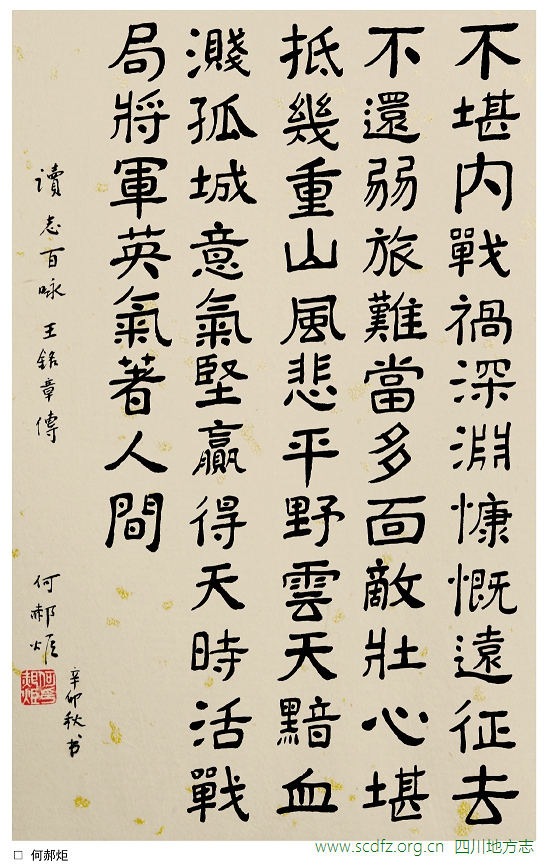 不堪内戰禍深淵慷慨遠征去
不還弱旅難當多面敵壯心堪
抵幾重山風悲平野雲天黯血
濺孤城意氣堅贏得天時活戰
局將軍英氣著人間
讀志百咏王銘章傳
何郝炬
辛卯秋书
www.scdfz.org.cn 四川地方志
□ 何郝炬